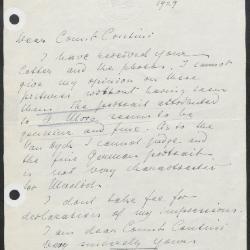 1929
Dear Count Contini
I have received your
letter and the photos. I cannot
give my opinion on these
pictures without having seen
them. The portrait attributed
to A. Moro seems to be
genuine and fine. As to the
Van Dyck I cannot judge and
the fine German portrait
is not very characteristic
for
I dont take fee for
declarations of my impressions.
I am dear Count Contini
very sincerely yours